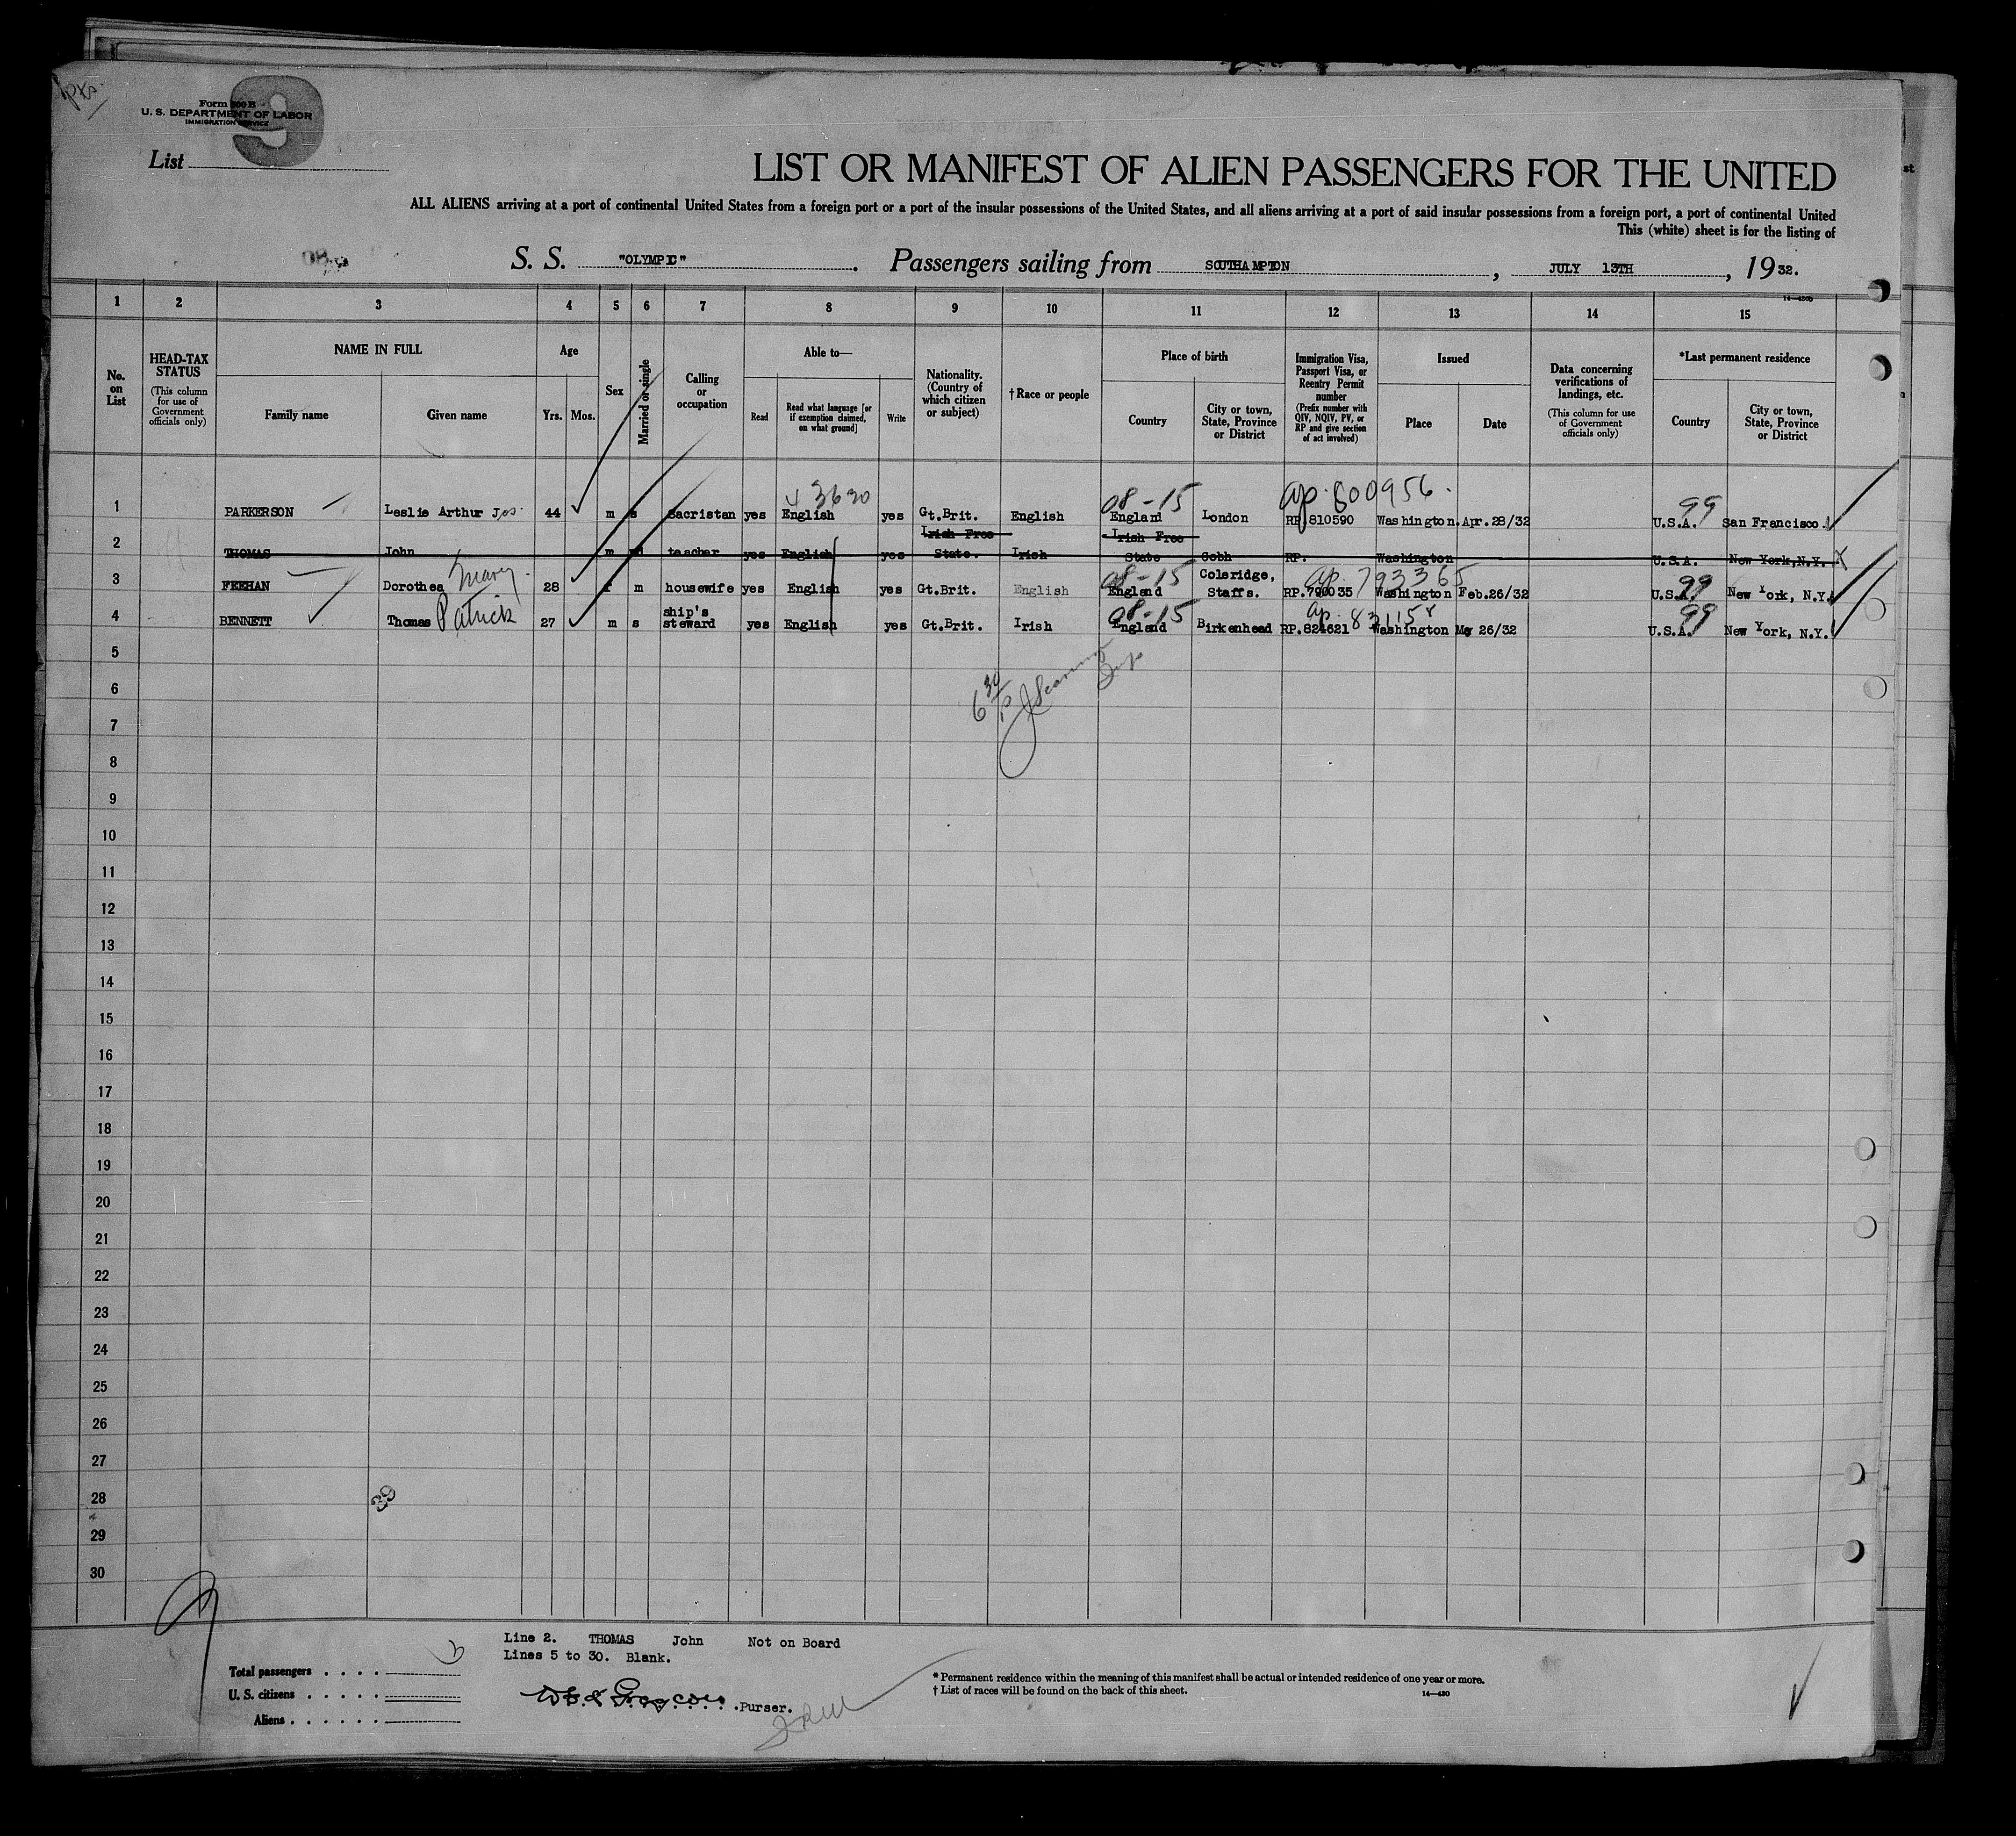 9
Form 500 B
U. S. DEPARTMENT OF LABOR
IMMIGRATION SERVICE
List
LIST OR MANIFEST OF ALIEN PASSENGERS FOR THE UNITED
ALL ALIENS arriving at a port of continental United States from a foreign port or a port of the insular possessions of the United States, and all aliens arriving at a port of said insular possessions from a foreign port, a port of continental United
This (white) sheet is for the listing of
S. S. "OLYMPIC". Passengers sailing from SOUTHAMPTON, JULY 13TH, 1932.
14—430b
1 2 3 4 5 6 7 8 9 10 11 12 13 14 15
No. on List
HEAD-TAX STATUS (This column for use of Government officials only)
NAME IN FULL Family name Given name
Age Yrs. Mos.
Sex
Married or single
Calling or occupation
Able to— Read Read what language [or if exemption claimed, on what ground] Write
Nationality. (Country of which citizen or subject)
†Race or people
Place of birth Country City or town, State, Province or District
Immigration Visa, Passport Visa, or Reentry Permit number (Prefix number with QIV, NQIV, PV, or RP and give section of act involved)
Issued Place Date
Data concerning verifications of landings, etc. (This column for use of Government officials only)
*Last permanent residence Country City or town, State, Province or District
3630 08-15 ap. 800956. 99
1 PARKERSON Leslie Arthur Jos. 44 m s Sacristan yes English yes Gt.Brit. English England London RP.810590 Washington. Apr.28/32 U.S.A. San Francisco.
2 THOMAS John m md teacher yes English yes Irish Free State. Irish Irish Free State Cobh RP. Washington U.S.A. New York, N.Y. X
08-15 ap. 793365 99
3 FEEHAN Dorothea Mary 28 f m housewife yes English yes Gt.Brit. English England Coleridge, Staffs. RP.790035 Washington Feb.26/32 U.S.A. New York, N.Y.
08-15 ap. 831158 99
4 BENNETT Thomas Patrick 27 m s ship's steward yes English yes Gt.Brit. Irish England Birkenhead RP.824621 Washington May 26/32 U.S.A. New York, N.Y.
5
6 6 30
7
8
9
10
11
12
13
14
15
16
17
18
19
20
21
22
23
24
25
26
27
28 39
29
30
Line 2. THOMAS John Not on Board
Lines 5 to 30. Blank.
Total passengers . . . .
U. S. citizens . . . . .
Aliens . . . . . .
Purser.
* Permanent residence within the meaning of this manifest shall be actual or intended residence of one year or more.
† List of races will be found on the back of this sheet.
14—430